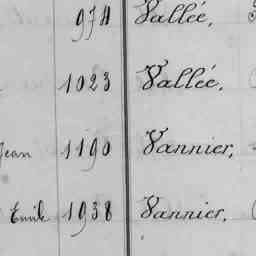 974 Vallée,
1023 Vallée.
Jean 1190 Vannier,
Emile 1938 Vannier.